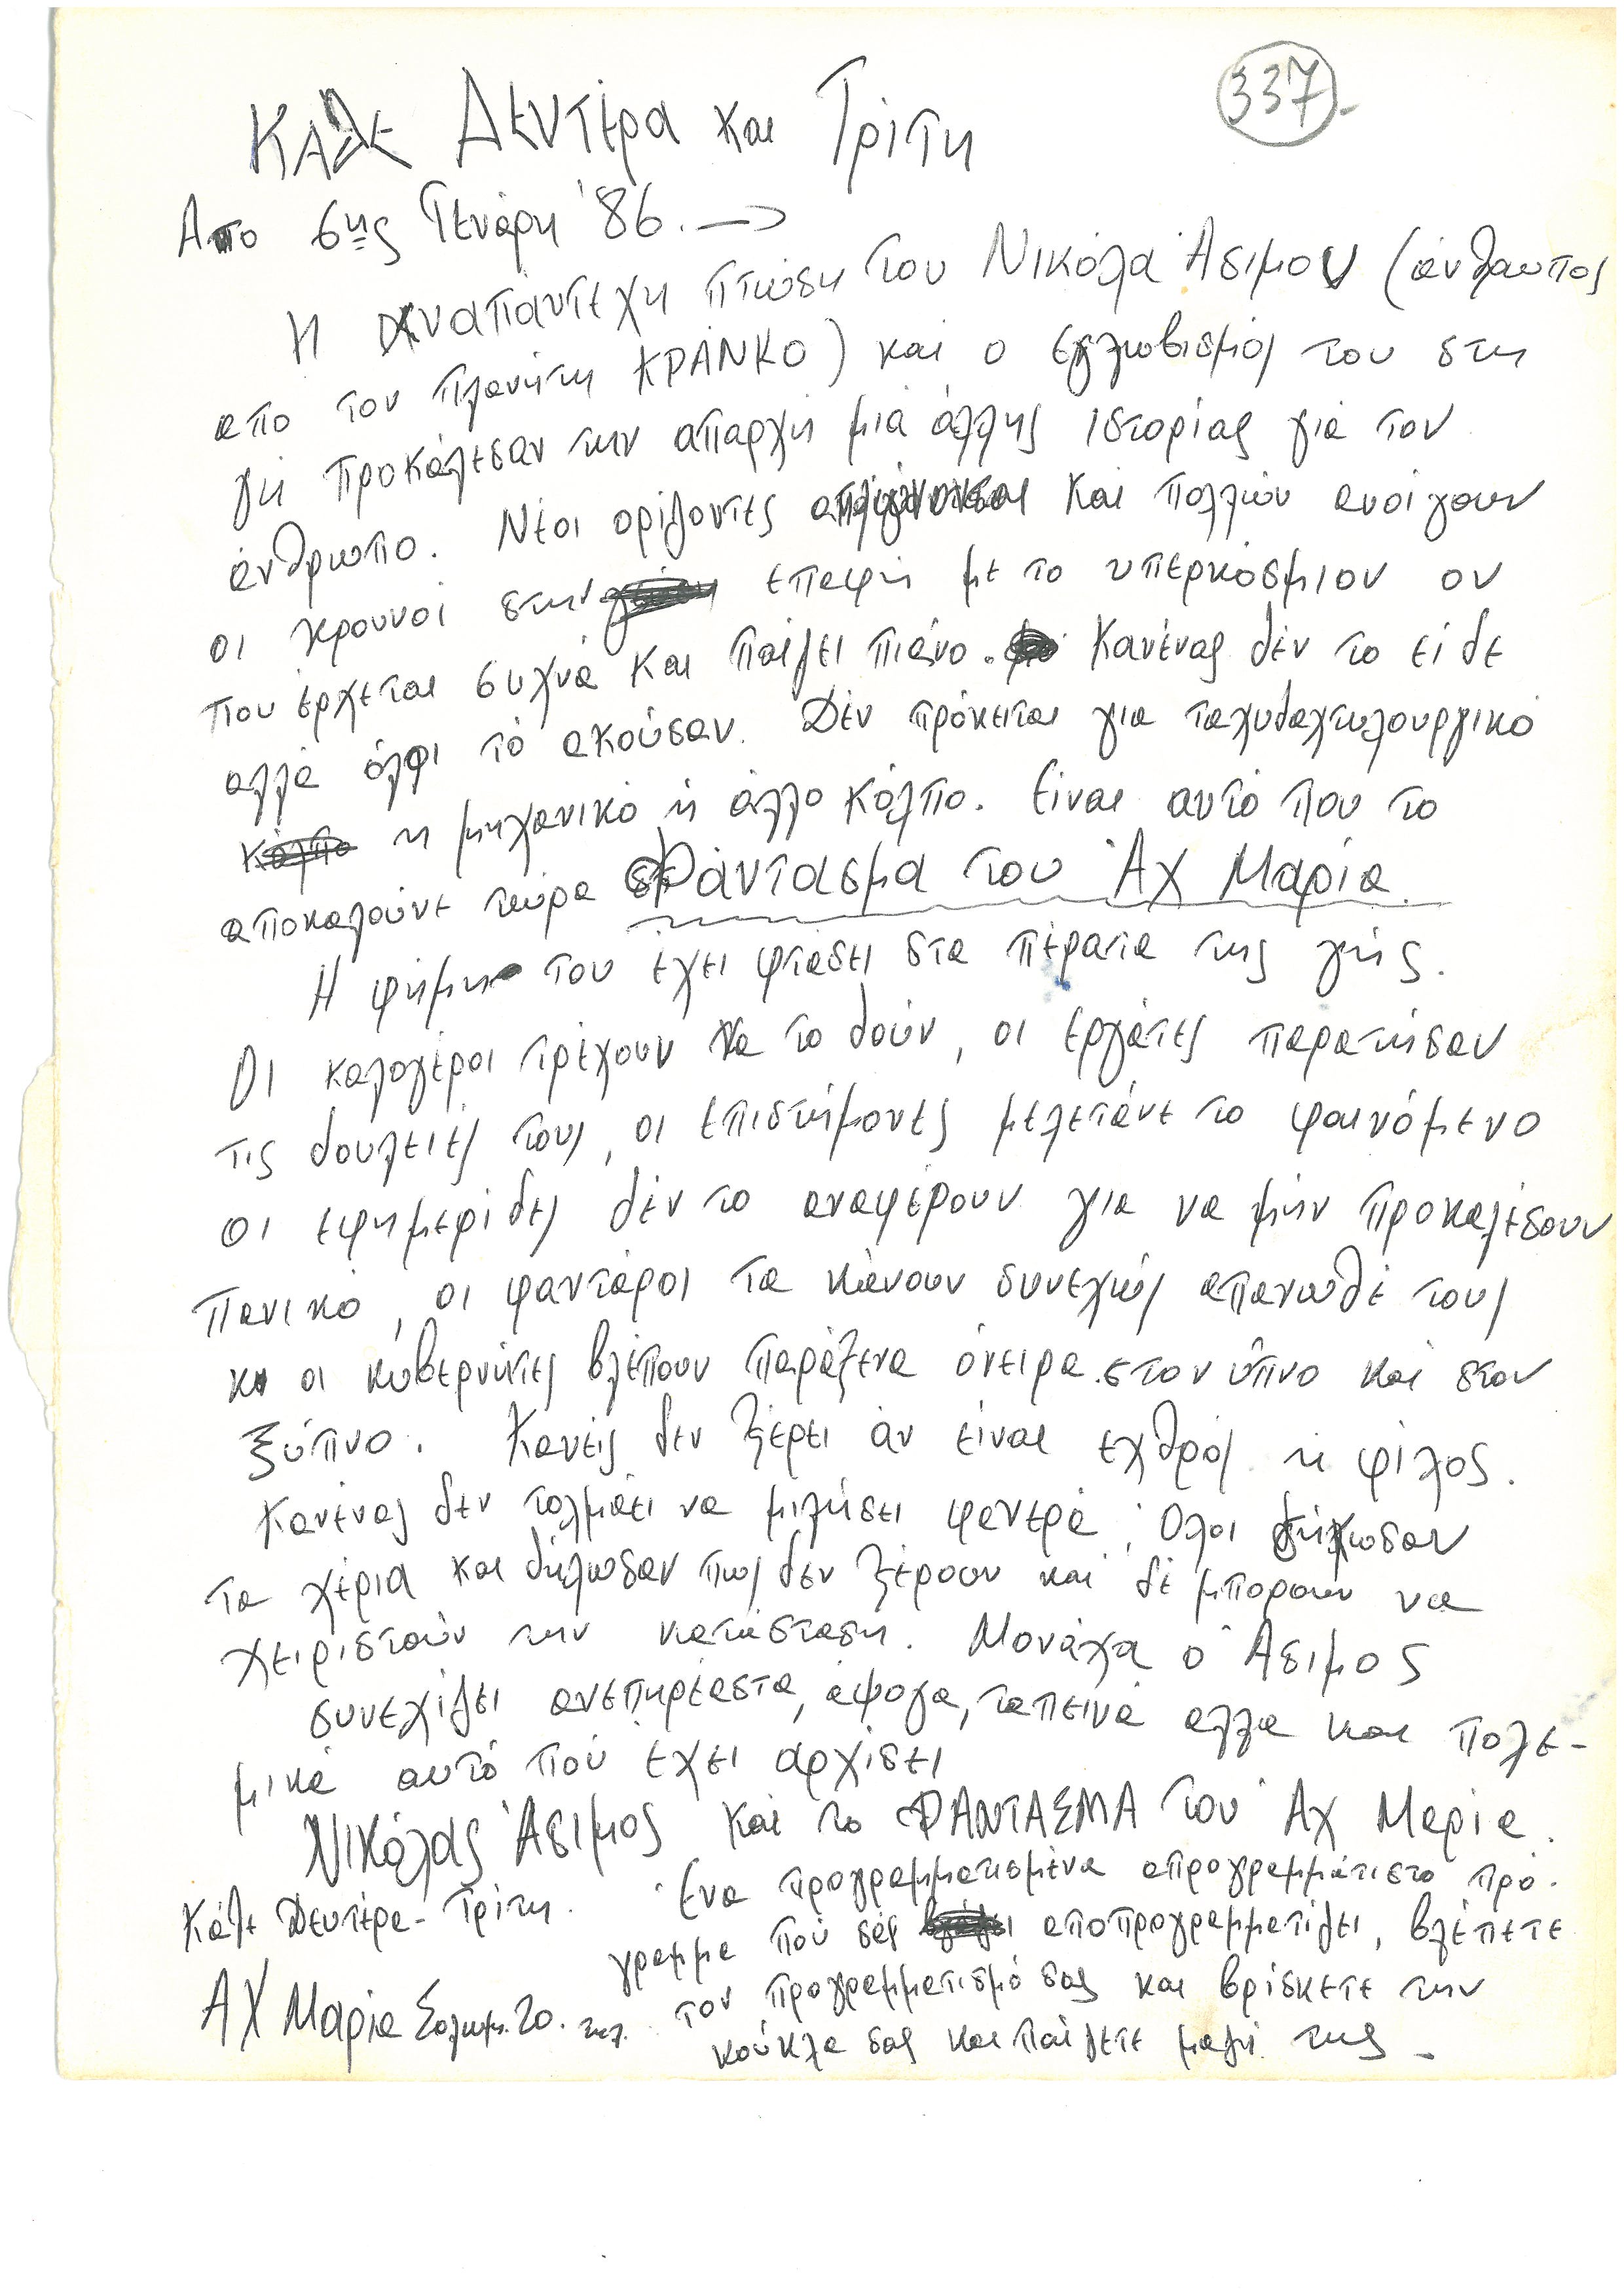 337
Κάθε Δευτέρα και Τρίτη
Απο 6ης Γενάρη '86. →
Η αναπάντεχη πτώση του Νικόλα Άσιμου (άνθρωπος
απο τον πλανήτη ΚΡΑΝΚΟ) και ο εγκλωβισμός του στη
γή προκάλεσαν την απαρχή μιά άλλης ιστορίας γιά τον
άνθρωπο. Νέοι ορίζοντες και πολλών ανοίγουν
οι κρουνοί στην επαφή με το υπερκόσμιον ον
που έρχεται συχνά και παίζει πιάνο. Κανένας δέν το είδε
αλλά όλοι τό ακούσαν. Δέν πρόκειται για ταχυδαχτυλουργικό
ή μηχανικό ή άλλο κόλπο. Είναι αυτό που το
αποκαλούνε τώρα Φάντασμα του Άχ Μαρία.
Η φήμη του έχει φτάσει στα πέρατα της γής.
Οι καλογέροι τρέχουν να το δούν, οι εργάτες παρατήσαν
τις δουλειές τους, οι επιστήμονες μελετάνε το φαινόμενο
οι εφημερίδες δέν το αναφέρουν για να μήν προκαλέσουν
πανικό, οι φαντάροι τα κάνουν συνεχώς απανωθέ τους
κι οι κυβερνήτες βλέπουν παράξενα όνειρα στον ύπνο και στον
ξύπνο. Κανείς δεν ξέρει άν είναι εχθρός ή φίλος.
Κανένας δεν τολμάει να μιλήσει φανερά. Όλοι σηκώσαν
τα χέρια και δήλωσαν πως δεν ξέρουν και δέ μπορούν να
χειριστούν την κατάσταση. Μονάχα ο Άσιμος
συνεχίζει ανεπηρέαστα, άψογα, ταπεινά αλλά και πολε-
μικά αυτό πού έχει αρχίσει
Νικόλας Άσιμος και το ΦΑΝΤΑΣΜΑ του Άχ Μαρία.
Κάθε Δευτέρα - Τρίτη. Ένα προγραμματισμένα απρογραμμάτιστο πρό-
γραμμα πού σάς αποπρογραμματίζει, βλέπετε
ΑΧ Μαρία Σολωμ. 20. τηλ. τον προγραμματισμό σας και βρίσκετε την
κούκλα σας και παίζετε μαζί της -